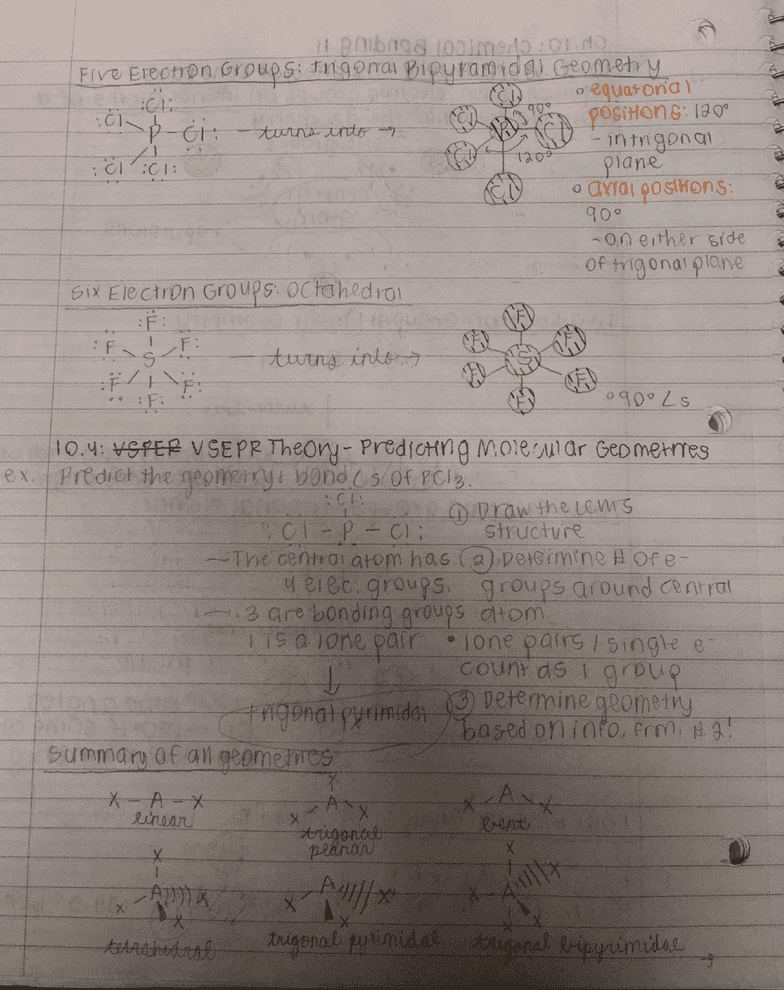 Five Electron Groups: trigonal Bipyramidal Geometry
:Cl:
:Cl P Cl: - turns into →
:Cl :Cl:
Cl
Cl 90°
Cl
Cl 120°
Cl
○ equatorial
positions: 120°
- in trigonal
plane
○ axial positions:
90°
- on either side
of trigonal plane
Six Electron Groups: Octahedral
:F:
:F F:
S
:F F:
:F:
- turns into →
F
F F
S
F F
F
○ 90° ∠s
10.4: VSPER VSEPR Theory - Predicting Molecular Geometries
ex. Predict the geometry & bond ∠s of PCl3.
:Cl:
:Cl - P - Cl:
① Draw the Lewis
structure
- The central atom has
4 elec. groups.
- 3 are bonding groups
1 is a lone pair
↓
trigonal pyrimidal
② Determine # of e-
groups around central
atom
• lone pairs / single e-
count as 1 group
③ Determine geometry
based on info. frm. #2!
Summary of all geometries
X - A - X
linear
X
A
X X
trigonal
planar
A
X X
bent
X
A X
X X
tetrahedral
A X
X X
trigonal pyrimidal
X
X A X
X X
trigonal bipyrimidal
→